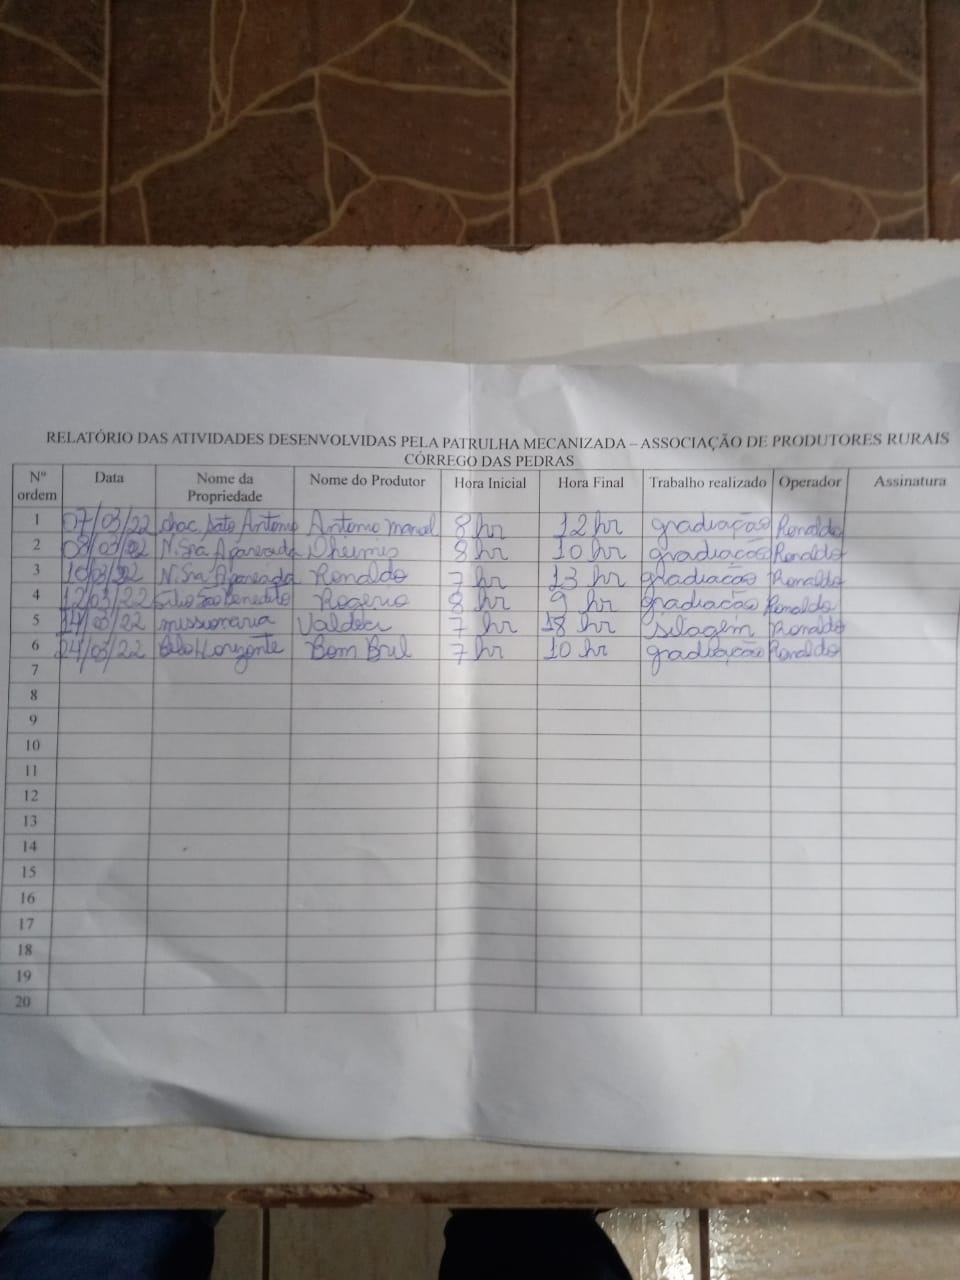 RELATÓRIO DAS ATIVIDADES DESENVOLVIDAS PELA PATRULHA MECANIZADA – ASSOCIAÇÃO DE PRODUTORES RURAIS
CÓRREGO DAS PEDRAS
Nº ordem Data Nome da Propriedade Nome do Produtor Hora Inicial Hora Final Trabalho realizado Operador Assinatura
1 07/03/22 chac. Sato Antonio Antonio manoel 8 hr 12 hr gradiação Ronaldo
2 08/03/22 N. Sra Aparecida 8 hr 10 hr gradiacão Ronaldo
3 10/03/22 N. Sra Aparecida Ronaldo 7 hr 13 hr gradiacão Ronaldo
4 12/03/22 Sitio São Benedito Rogerio 8 hr 9 hr gradiacão Ronaldo
5 14/03/22 missionaria Valdeci 7 hr 18 hr silagem Ronaldo
6 24/03/22 Belo Horizonte Bom Bril 7 hr 10 hr gradiação Ronaldo
7
8
9
10
11
12
13
14
15
16
17
18
19
20